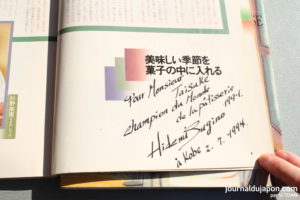 美味しい季節を
菓子の中に入れる
Pour Monsieur
Taisuke
champion du Monde
de la pâtisserie
1991.
Hidemi Sugino
à Kobe 2. 7. 1994.
journaldujapon.com